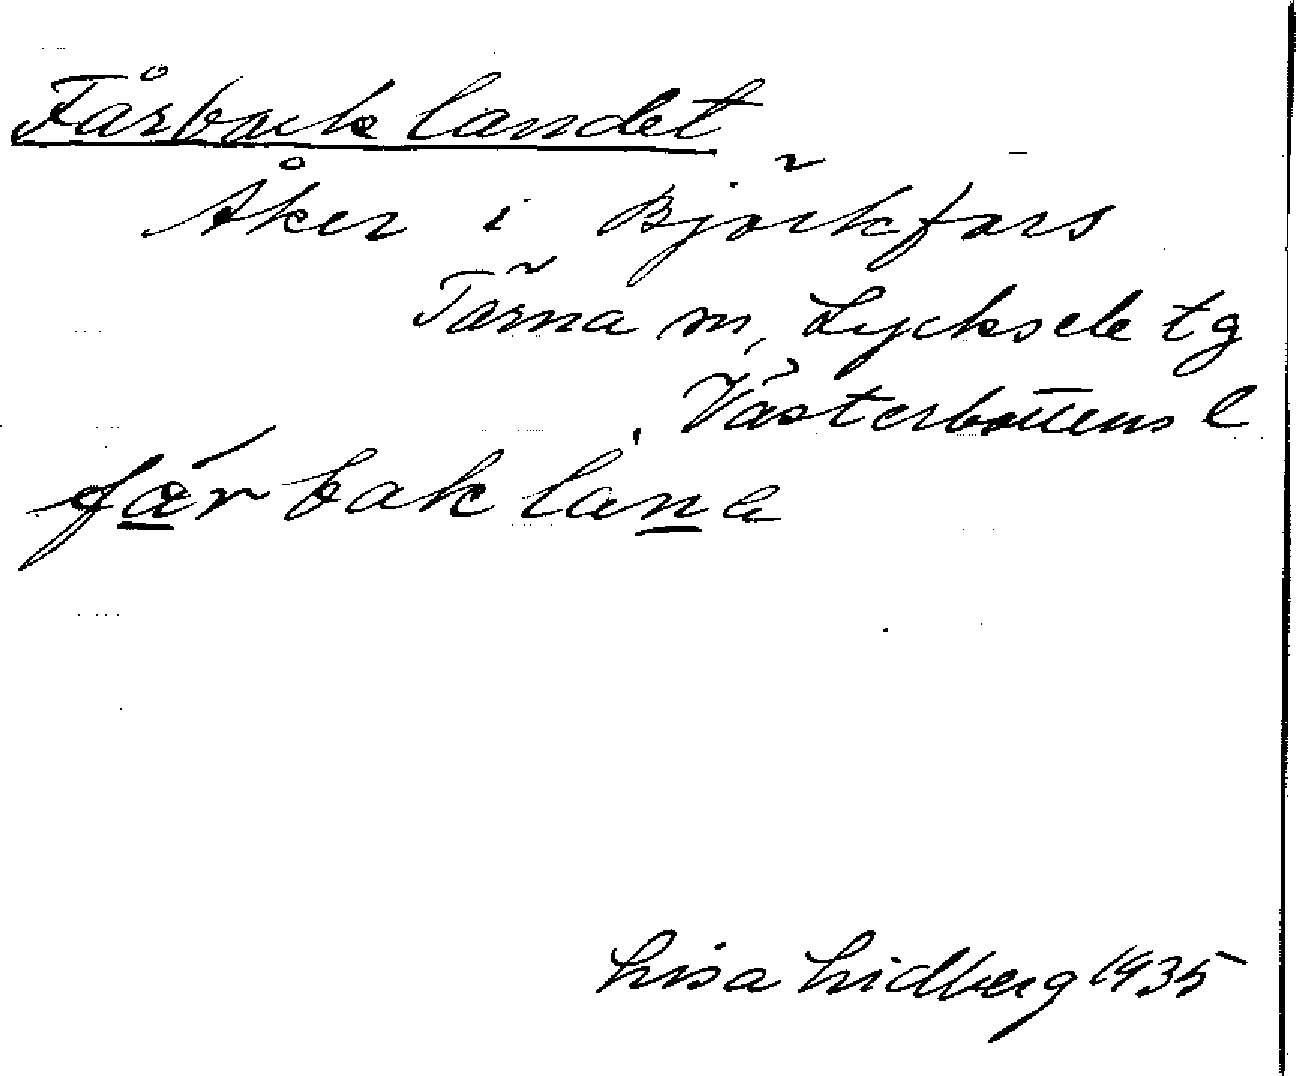 Fårbacklandet
Åker i Björkfors
Tärna m, Lycksele tg
Västerbottens l
fǽr bak làna
Lisa Lidberg 1935